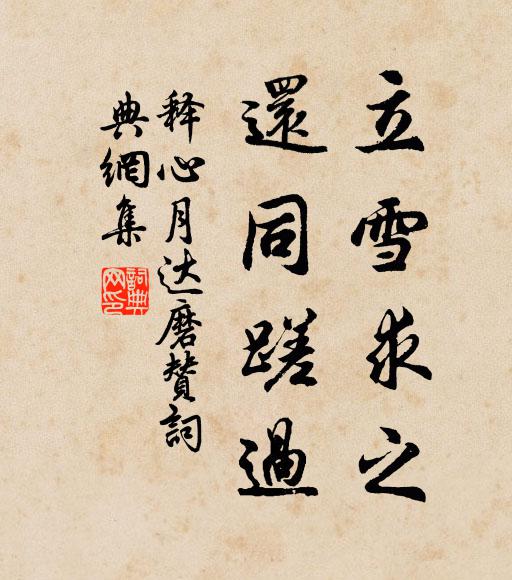 立雪求之
還同蹉過
释心月达磨贊詞
典網集
詞典網印